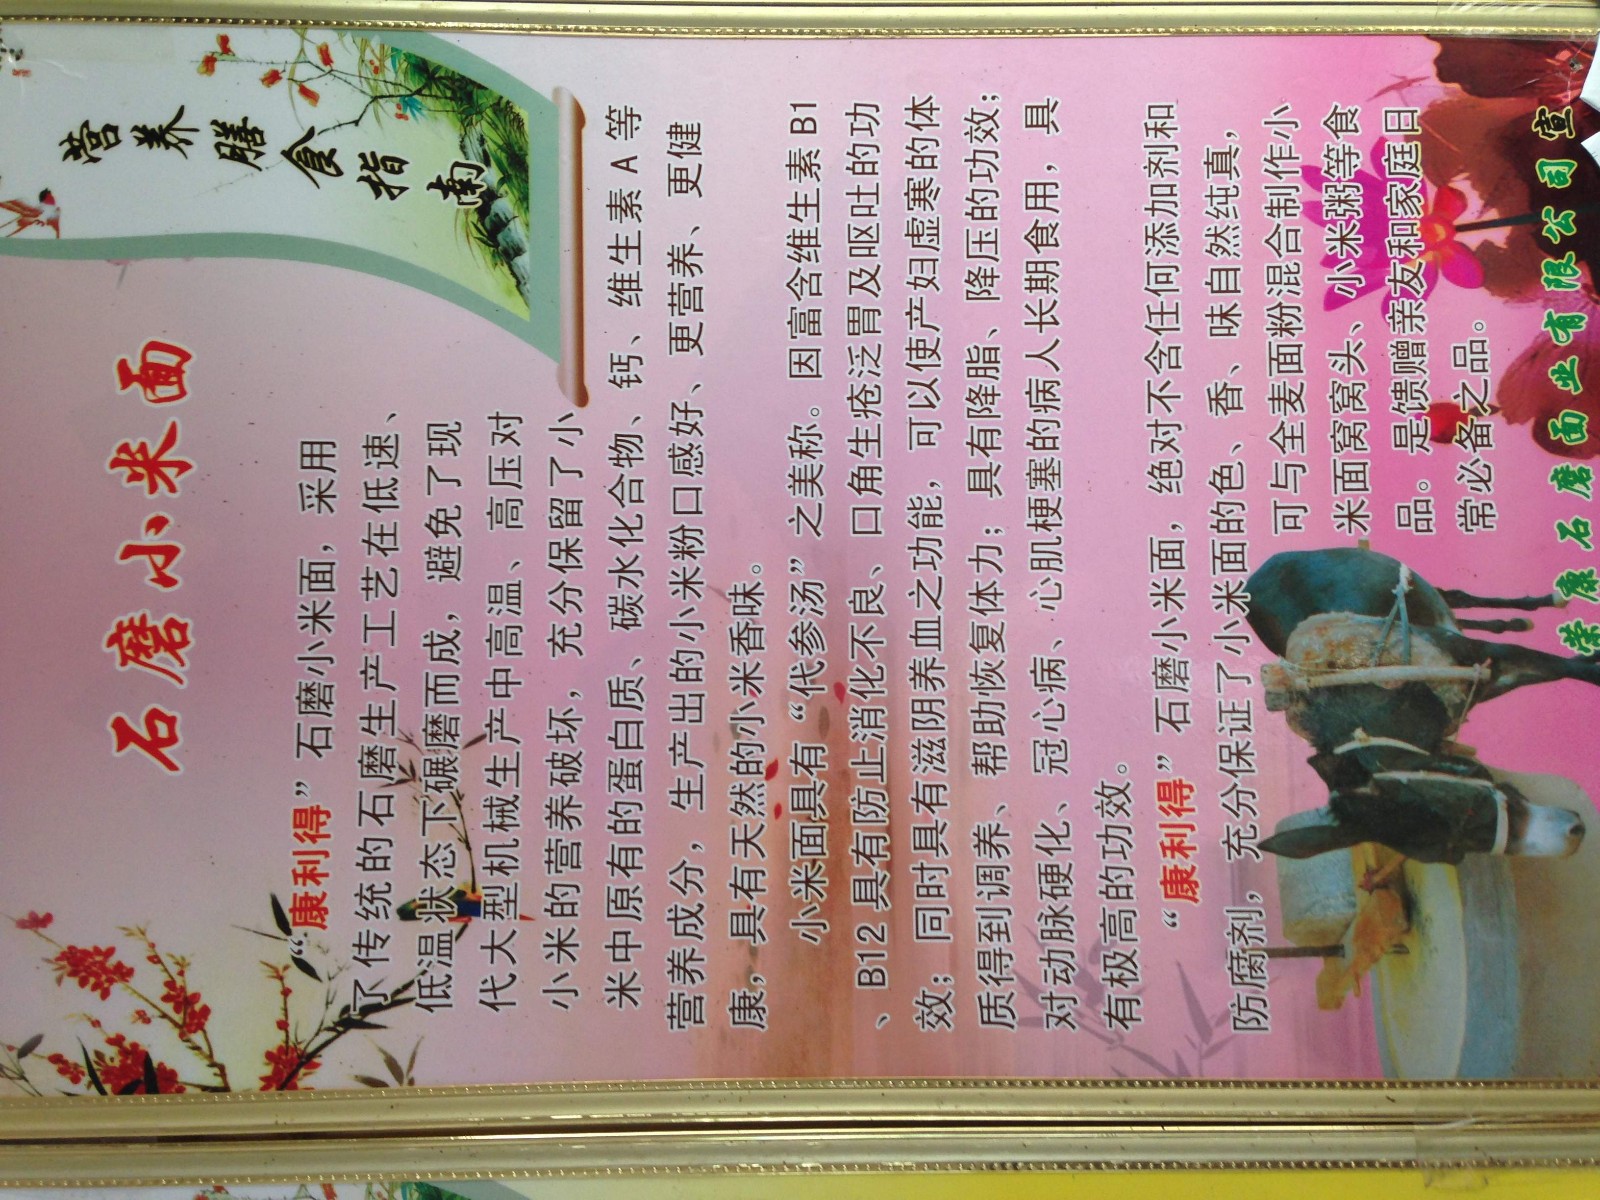 营养膳食指南
石磨小米面
“康利得”石磨小米面，采用
了传统的石磨生产工艺在低速、
低温状态下碾磨而成，避免了现
代大型机械生产中高温、高压对
小米的营养破坏，充分保留了小
米中原有的蛋白质、碳水化合物、钙、维生素A等
营养成分，生产出的小米粉口感好、更营养、更健
康，具有天然的小米香味。
小米面具有“代参汤”之美称。因富含维生素B1
、B12具有防止消化不良、口角生疮泛胃及呕吐的功
效；同时具有滋阴养血之功能，可以使产妇虚寒的体
质得到调养、帮助恢复体力；具有降脂、降压的功效；
对动脉硬化、冠心病、心肌梗塞的病人长期食用，具
有极高的功效。
“康利得”石磨小米面，绝对不含任何添加剂和
防腐剂，充分保证了小米面的色、香、味自然纯真，
可与全麦面粉混合制作小
米面窝窝头、小米粥等食
品。是馈赠亲友和家庭日
常必备之品。
荣康石磨面业有限公司宣